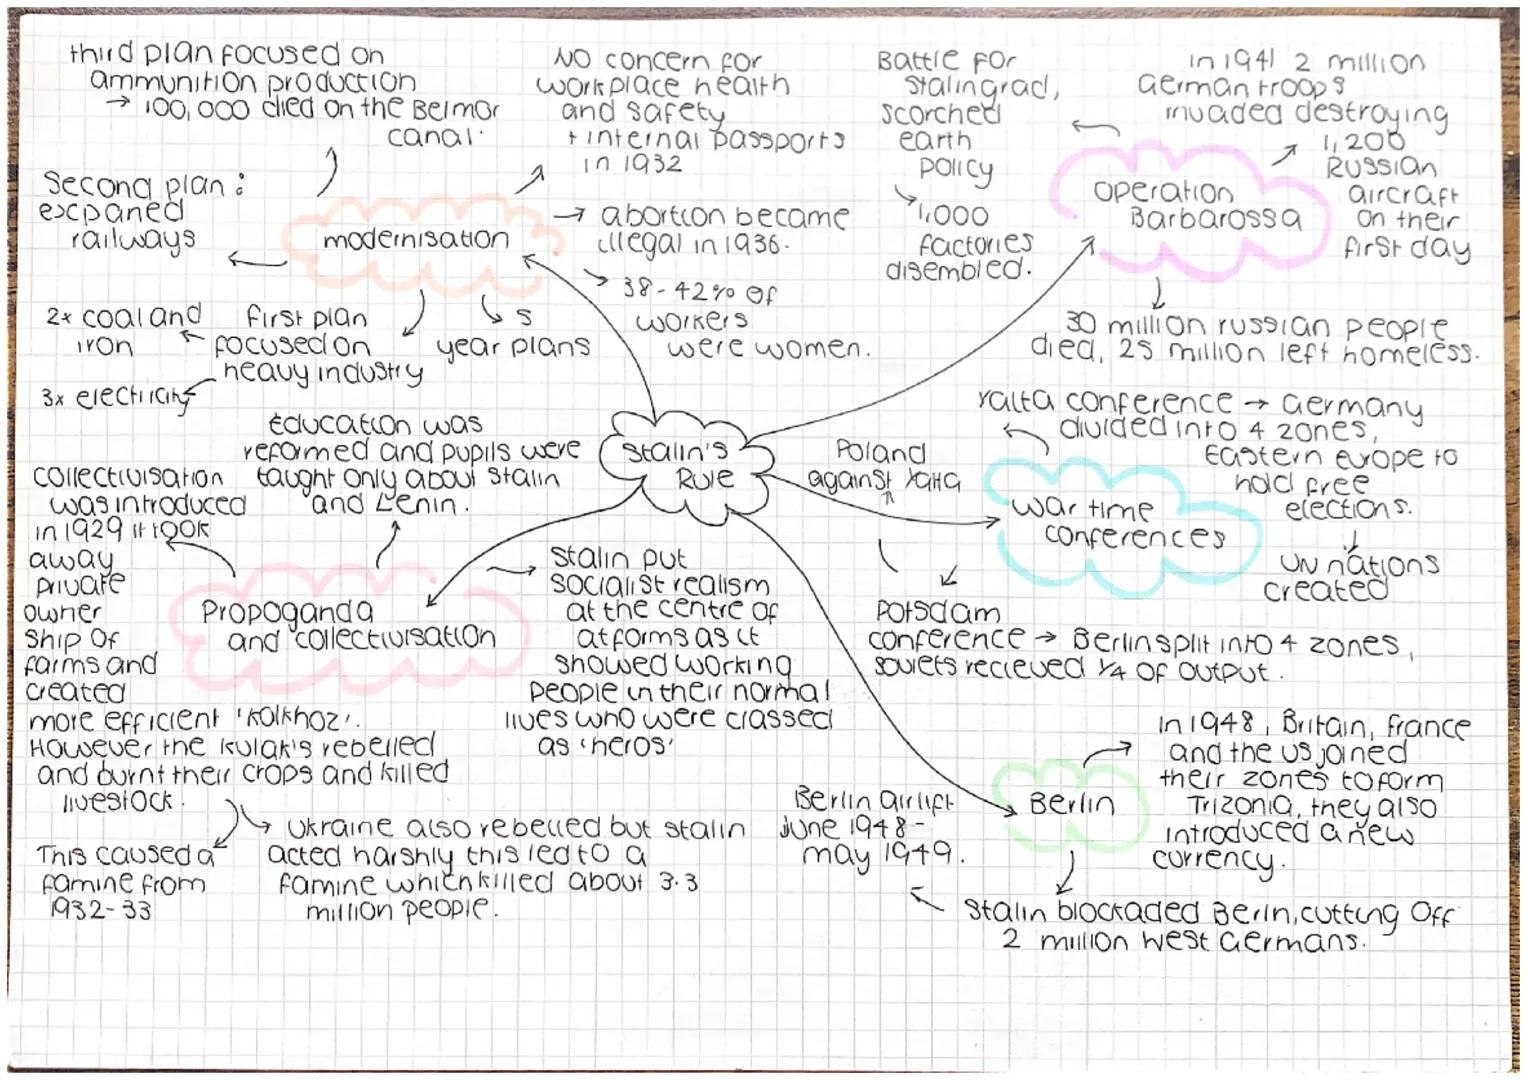 third plan focused on
ammunition production
→ 100,000 died on the Belmor
canal.
Second plan:
excpaned
railways
modernisation
NO concern for
workplace health
and safety
+ internal passports
in 1932
→ abortion became
illegal in 1936.
38-42% of
workers
were women.
5
year plans
first plan
focused on
heavy industry
2x coal and
iron
3x electricity
Battle for
Stalingrad,
scorched
earth
policy
1,000
factories
disembled.
in 1941 2 million
German troops
invaded destroying
1,200
Russian
aircraft
on their
first day
operation
Barbarossa
30 million russian people
died, 25 million left homeless.
Stalin's
Rule
Education was
reformed and pupils were
taught only about Stalin
and Lenin.
collectivisation
was introduced
in 1929 it took
away
private
owner
ship of
farms and
created
more efficient 'kolkhoz'.
However the kulak's rebelled
and burnt their crops and killed
livestock.
Propoganda
and collectivisation
Stalin put
socialist realism
at the centre of
atforms as it
showed working
people in their normal
lives who were classed
as 'heros'
This caused a
famine from
1932-33
Ukraine also rebelled but Stalin
acted harshly this led to a
famine which killed about 3.3
million people.
Yalta conference → Germany
divided into 4 zones,
Eastern europe to
hold free
elections.
UN nations
created
Poland
against Yalta
war time
conferences
Potsdam
conference → Berlin split into 4 zones,
soviets recieved 1/4 of output.
Berlin
in 1948, Britain, france
and the us joined
their zones to form
Trizonia, they also
introduced a new
currency.
Stalin blockaded Berlin, cutting off
2 million west Germans.
Berlin airlift
June 1948-
may 1949.